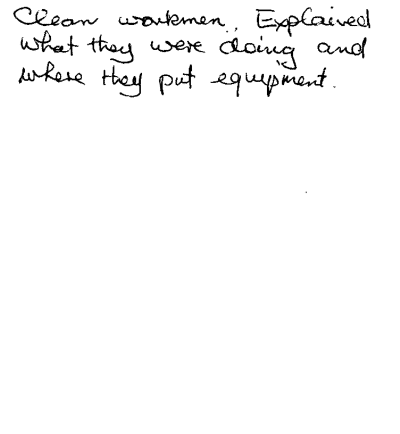 Clean workmen, Explained
what they were doing and
where they put equipment.